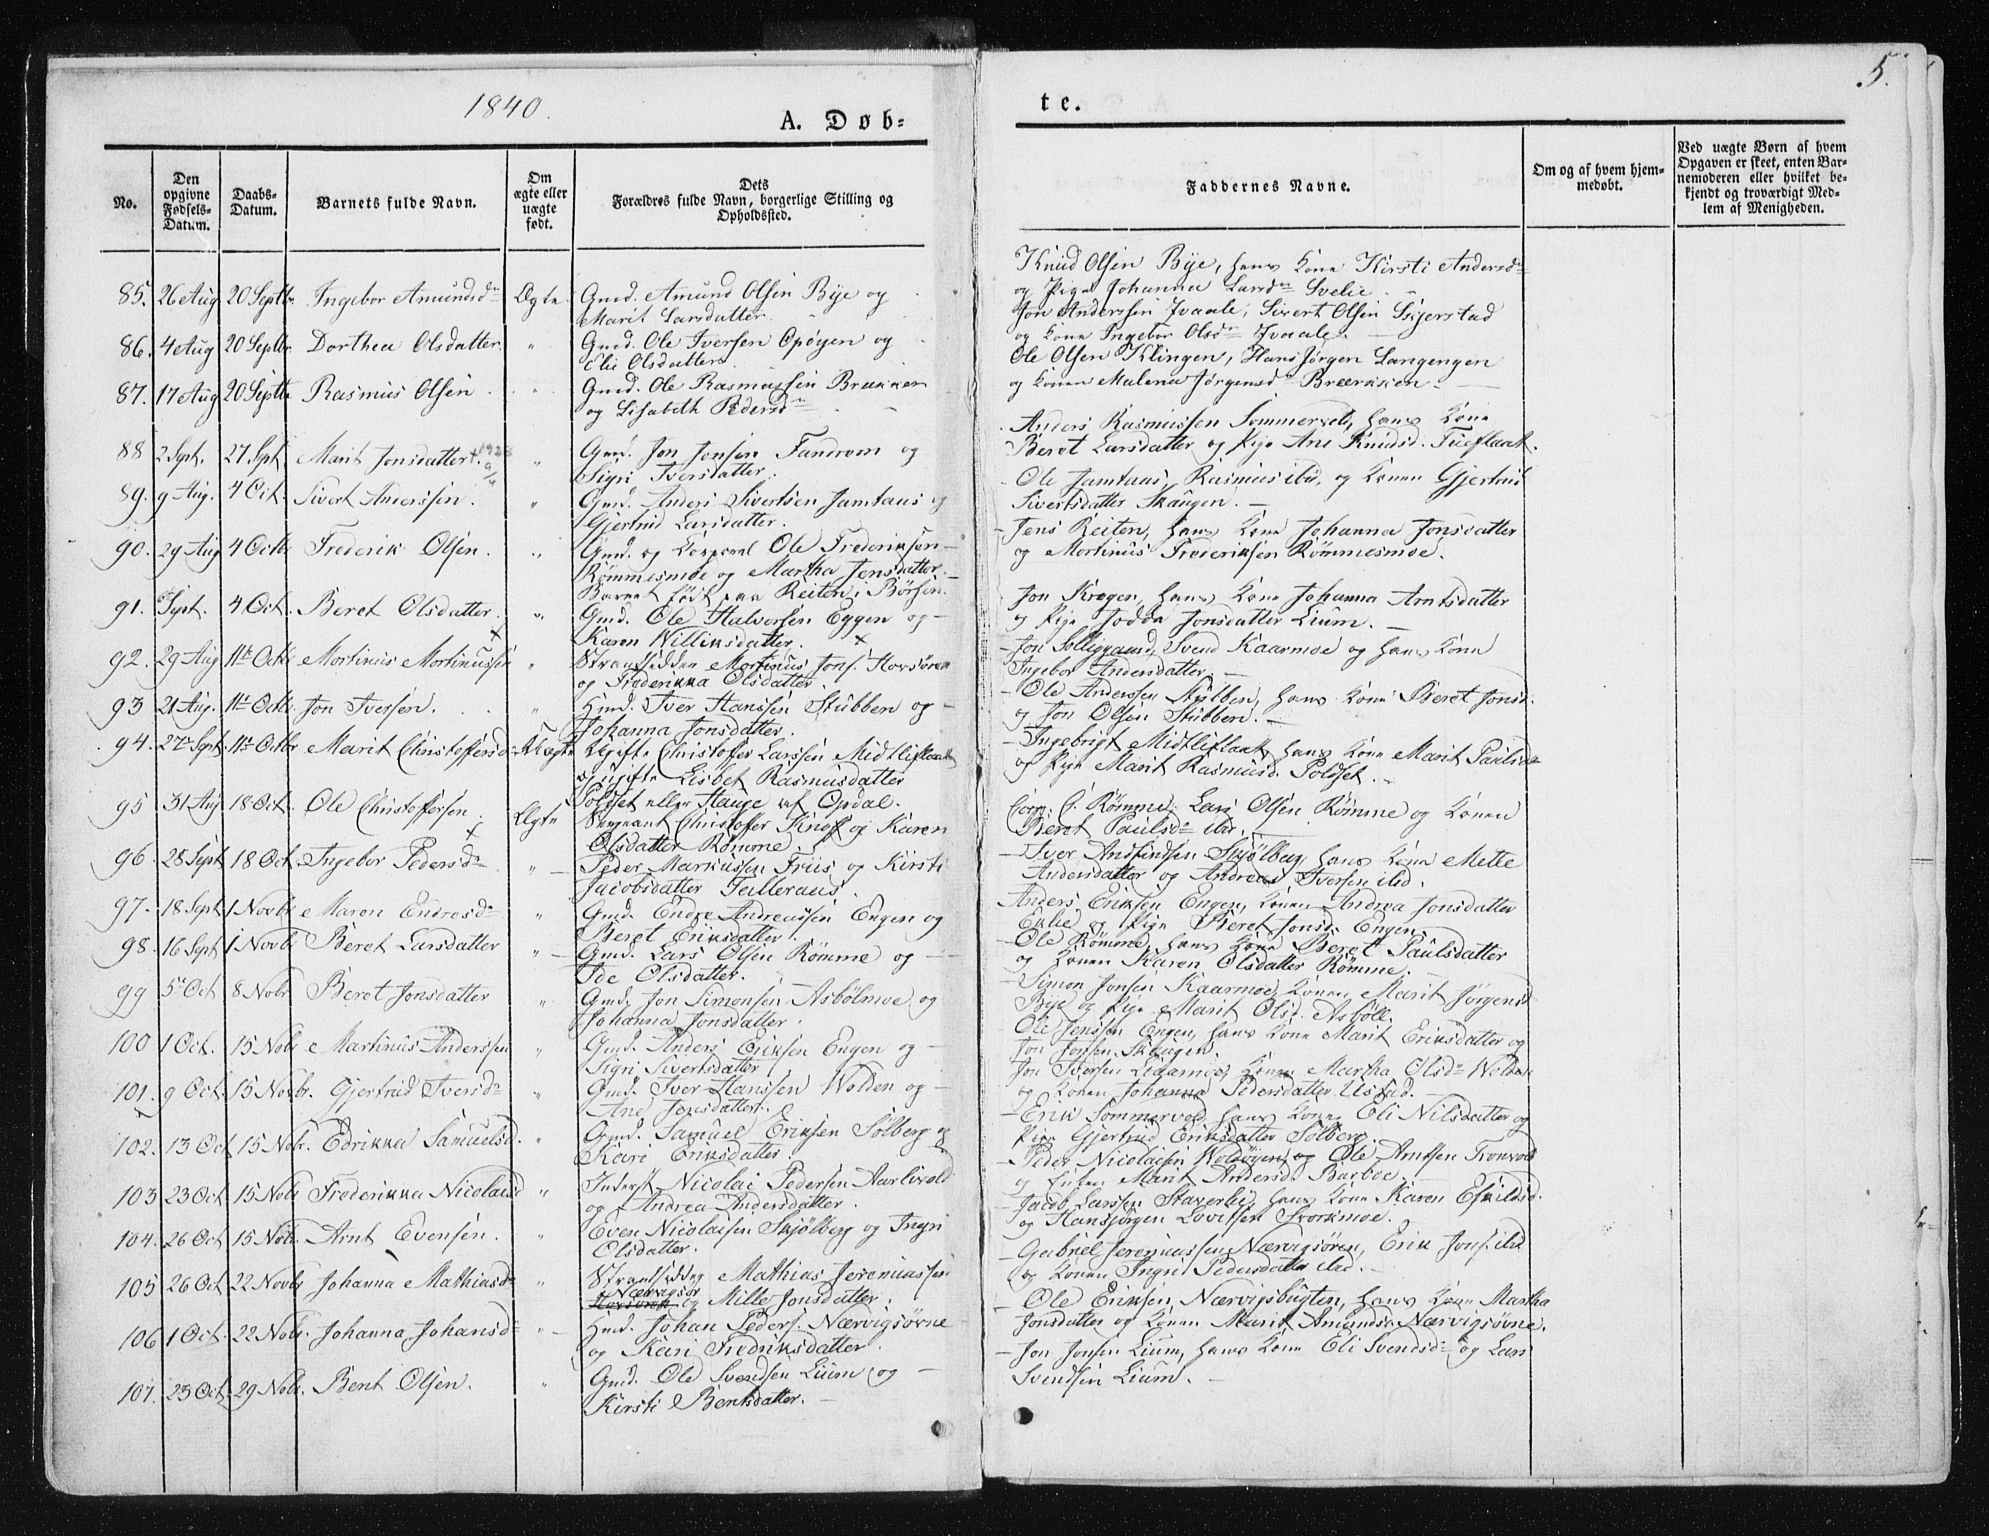 1840.
A. Døb=
te.
5.
No.
Den opgivne Fødsels-Datum.
Daabs-Datum.
Barnets fulde Navn.
Om ægte eller uægte født.
Dets Forældres fulde Navn, borgerlige Stilling og Opholdssted.
Faddernes Navne.
Om og af hvem hjem-medøbt.
Ved uægte Børn af hvem Opgaven er skeet, enten Bar-nemoderen eller hvilket be-kjendt og troværdigt Med-lem af Menigheden.
85. 26 Aug 20 Septbr. Ingebor Amundsdr Ægte. Gmd. Amund Olsen Bye og
Marit Larsdatter.
Knud Olsen Bye, hans Kone Kirsti Andersdr
og Pige Johanna Larsdr Svelie.
86. 4 Aug 20 Septbr. Dorthea Olsdatter. " Gmd. Ole Iversen Opøyen og
Eli Olsdatter.
Jon Anderssen Ivaale, Sivert Olsen
og Kone Ingebor Olsdr Ivaale.
87. 17 Aug 20 Septbr. Rasmus Olsen. " Gmd. Ole Rasmussen
og Lisabeth Pedersdr
Ole Olsen Klingen, Hans Jørgen Langengen
og Konen Malena Jørgensdr
88 2 Sept. 27 Spt. Marit Jonsdatter " Gmd. Jon Jonsen Fandrem og
Sigri Iversdatter.
Anders Rasmussen Sommervold, hans Kone
Beret Larsdatter og Pige Ane Knudsd.
89. 9 Aug. 4 Oct. Sivert Anderssen. " Gmd. Anders Sivertsen Jamtaas og
Gjertrud Larsdatter.
Ole Jamtaas, Rasmus ibid, og Konen Gjertrud
Sivertsdatter Skaugen.
90. 29 Aug 4 Octbr Frederik Olsen. " Gmd. og Corporal Ole Frederiksen
Rømmesmoe og Martha Jensdatter.
Barnet født paa Reiten i Børsen.
Jens Reiten, hans Kone Johanna Jonsdatter
og Mortinus Frederiksen Rømmesmoe.
91. Sept. 4 Oct. Beret Olsdatter. " Gmd. Ole Halvorsen Eggen og
Karen Willumsdatter.
Jon Krogen, hans Kone Johanna Arntsdatter
og Pige Jonsdatter Lium.
92. 29 Aug 11te Octbr Mortinus Mortinussen " Strandsidder Mortinus Jons.
og Frederikka Olsdatter
Jon Solliggaard, Svend Kaarmoe og hans Kone
Ingebor Andersdatter.
93 21 Aug. 11te Octbr. Jon Iversen. " Hmd. Iver Hanssen Stubben og
Johanna Jonsdatter.
Ole Anderssen Stubben, hans Kone Beret Jonsd.
og Jon Olsen Stubben.
94. 27de Sept. 11te Octbr Marit Christoffersd. Uægte Ugifte Christofer Larssen Midtliflaat
og ugifte Lisbet Rasmusdatter
Poldset eller Hauge af Opdal.
Ingebrigt Midtliflaat, hans Kone Marit Paulsdr
og Pige Marit Rasmusd. Poldset.
95 31 Aug 18 Oct. Ole Christoffersen. Ægte Sergeant Christofer Knoff og Karen
Olsdatter Rømme.
Corp. C. Rømme, Lars Olsen Rømme og Konen
Beret Paulsdr ibd.
96 28 Sept 18 Oct. Ingebor Pedersdr " Peder Markussen Friis og Kirsti
Jacobsdatter
Iver Andfindsen Skjølberg, hans Kone Mette
Andersdatter og Andreas Iversen ibid.
97. 18 Sept 1 Novbr Maren Endresdr " Gmd. Endre Andreassen Engen og
Beret Eriksdatter.
Anders Eriksen Engen, Konen Andrea Jonsdatter
og Pige Beret Jonsd. Engen.
98. 16 Sept 1 Novb Beret Larsdatter " Gmd. Lars Olsen Rømme og
Ide Olsdatter.
Ole Rømme, hans Kone Beret Paulsdatter
og Konen Karen Olsdatter Rømme.
99 5 Oct 8 Nobr Beret Jonsdatter " Gmd. Jon Simonsen Asbølmoe og
Johanna Jonsdatter.
Simon Jonsen Kaarmoe, Konen Marit Jørgensd.
Bye og Pige Marit Olsd. Asbøll.
100 1 Oct. 15 Nobr Martinus Anderssen " Gmd. Anders Eriksen Engen og
Sigri Sivertsdatter
Ole Jenssen Engen, hans Kone Marit Eriksdatter og
Jon Jonsen Skaugen.
101. 9 Oct. 15 Novbr. Gjertrud Iversdr " Gmd. Iver Hanssen Wolden og
Ane Jonsdatter.
Jon Iversen Konen Martha Olsdr Wolden
og Konen Johanna Pedersdatter Ustad.
102. 13 Oct 15 Nobr. Edrikka Samuelsd. " Gmd. Samuel Eriksen Solberg og
Kari Eriksdatter.
Erik Sommervold, hans Kone Eli Nilsdatter og
Pige Gjertrud Eriksdatter Solberg.
103 23 Oct 15 Nobr Frederikka Nicolaisd " Inderst Nicolai Pedersen Aarlivold
og Andrea Andersdatter.
Peder Nicolaisen og Ole Arntsen
og Enken Marit Andersd.
104. 26 Oct 15 Nobr. Arnt Evensen. " Even Nicolaisen Skjølberg og Ingri
Olsdatter.
Jacob Larssen Staverlie, hans Kone Karen Eskildsd.
og Hansjørgen Lovitsen Svorkmoe.
105 26 Oct 22 Novbr Johanna Mathiasdr " Strandsidder Mathias Jeremiassen
Nærvigsør og Mille Jonsdatter.
Gabriel Jeremiassen Nærvigsøren, Erik Jons. ibid
og Konen Ingri Pedersdatter ibid.
106 1 Oct. 22 Nobr. Johanna Johansdr " Hmd. Johan Peders. Nærvigsørne
og Kari Fredriksdatter.
Ole Eriksen Nærvigsbugten, hans Kone Martha
Jonsdatter og Konen Marit Amundsd. Nærvigsørne.
107. 23 Oct. 29 Nobr. Bent Olsen. " Gmd. Ole Svendsen Lium og
Kirsti Bentsdatter.
Jon Jonsen Lium, hans Kone Eli Svendsdr og Lars
Svendsen Lium.